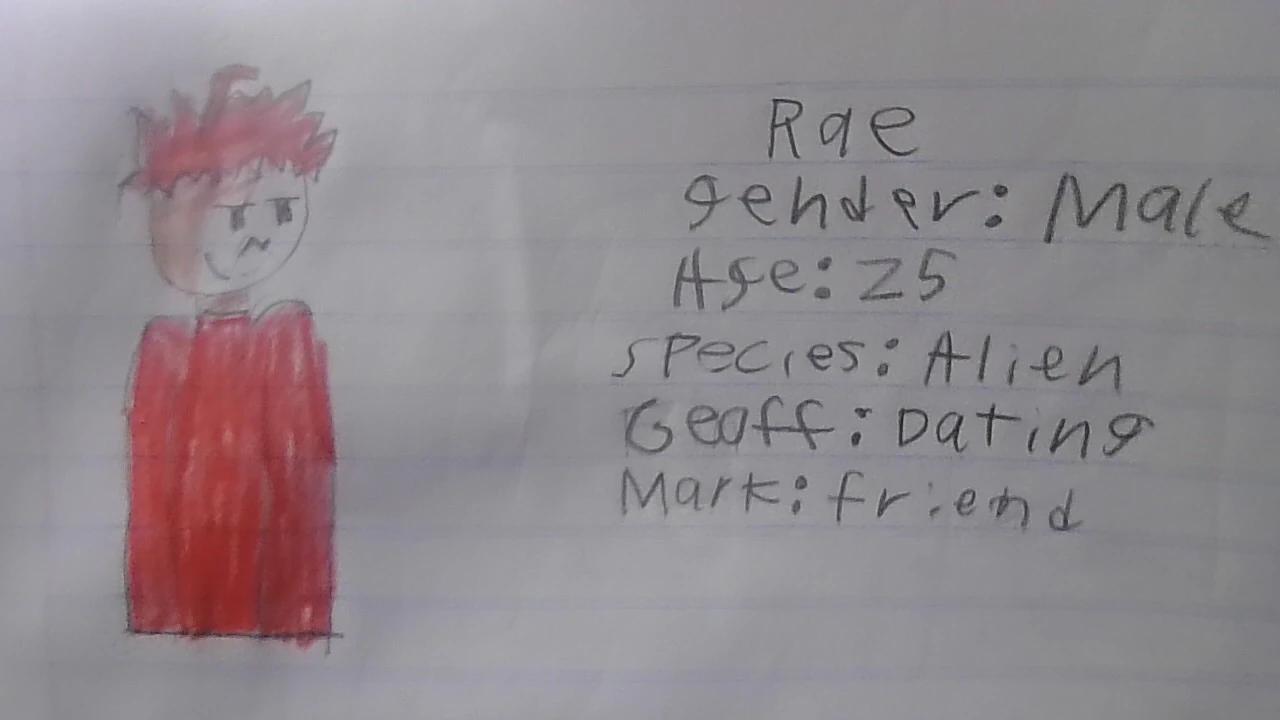 Rae
Gender: Male
Age: 25
Species: Alien
Geoff: Dating
Mark: friend